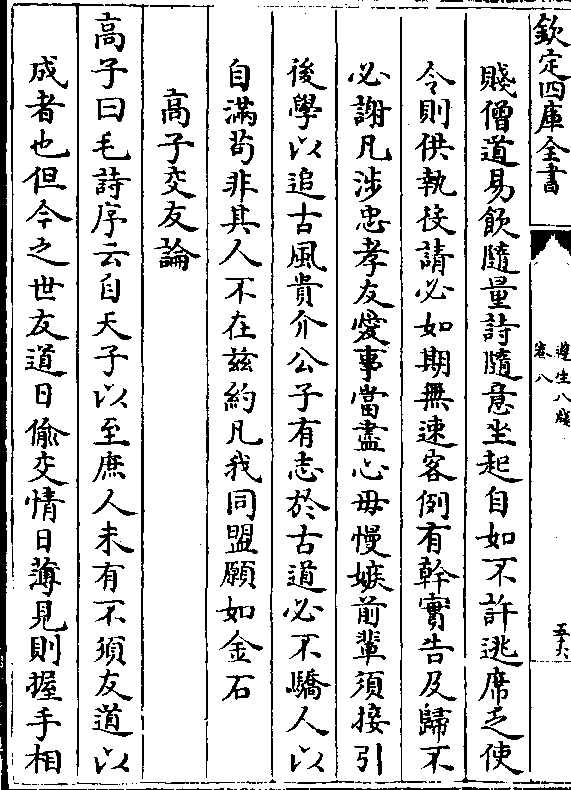 欽定四庫全書
遵生八牋
卷八
五六
賤僧道易飲隨量詩隨意坐起自如不許逃席乏使
令則供執役請必如期無速客例有幹實告及歸不
必謝凡涉忠孝友愛事當盡心毋慢嫉前輩須接引
後學以追古風貴介公子有志於古道必不驕人以
自滿茍非其人不在兹約凡我同盟願如金石
高子交友論
高子曰毛詩序云自天子以至庶人未有不須友道以
成者也但今之世友道日偷交情日薄見則握手相